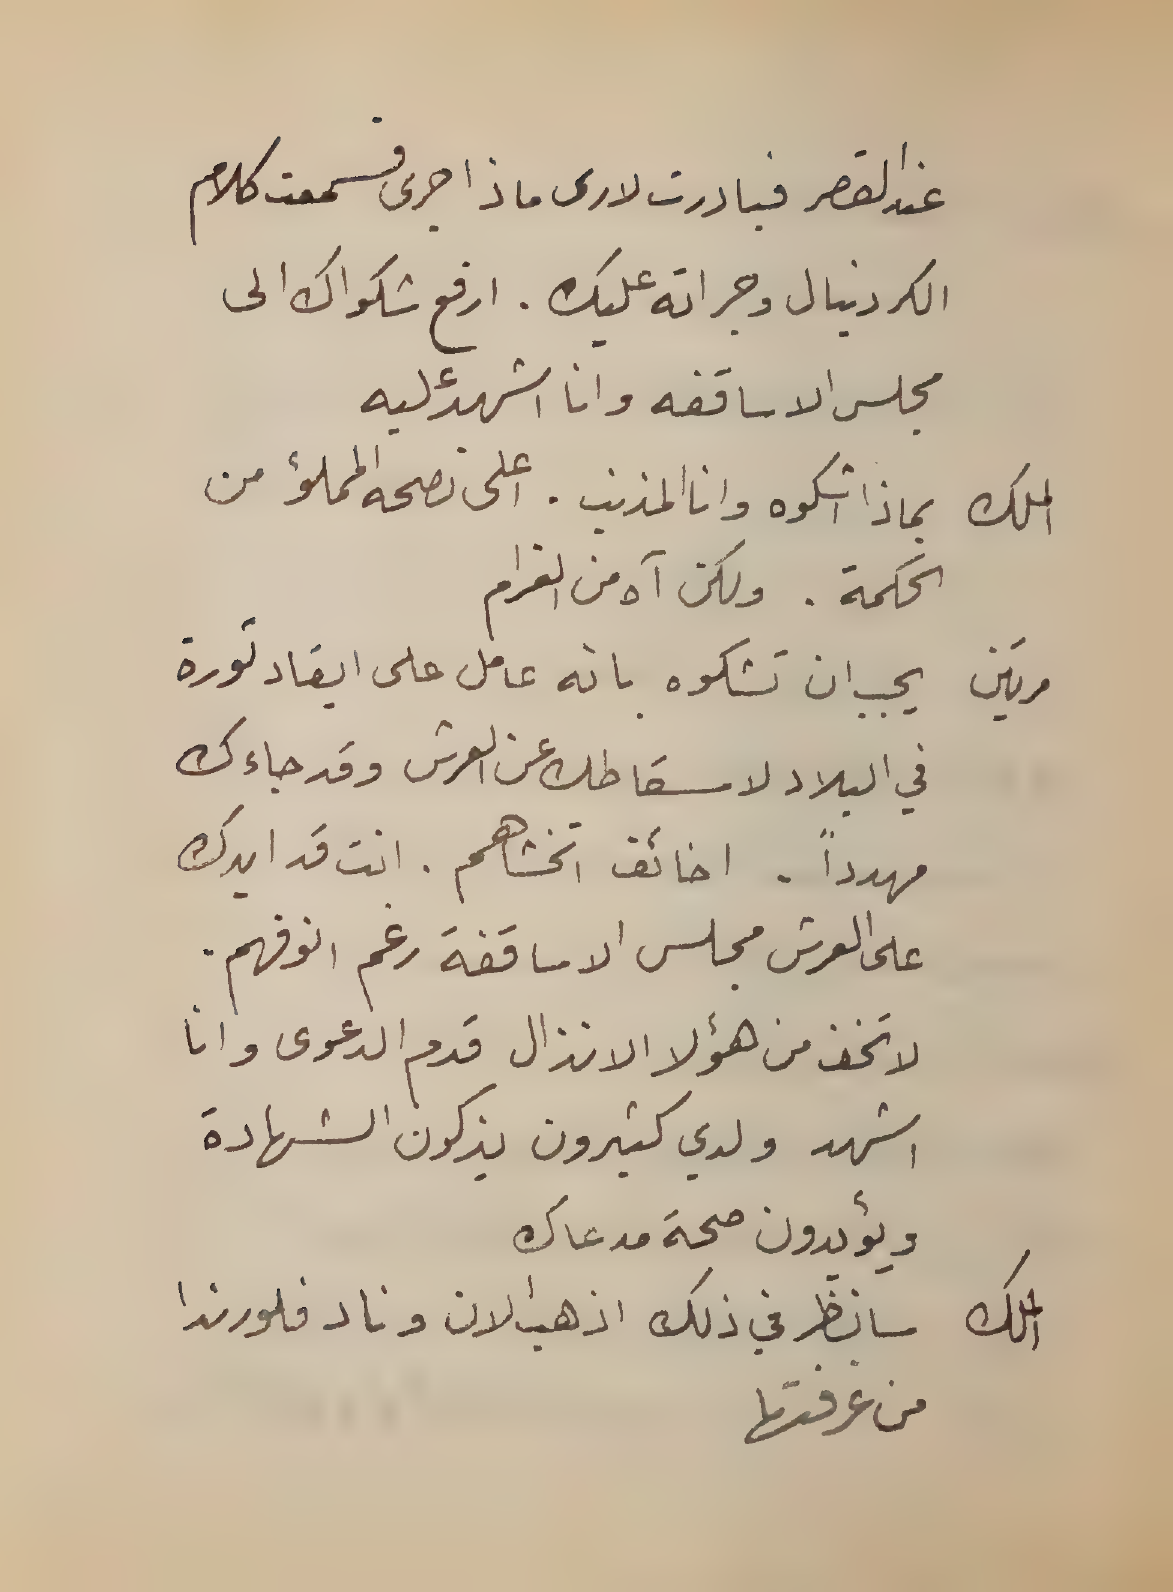 عند القصر فبادرت لارى ماذا جرى فسمعت كلام
الكردينال وجراته عليك . ارفع شكواك الى
مجلس الاساقفه وانا اشهد عليه
الملك بماذا اشكوه وانا المذنب . اعلى نصحه المملؤ من
الحكمة . ولكن آه من الغرام
مرتين يجب ان تشكوه بانه عامل على ايقاد ثورة
في البلاد لاسقاطك عن العرش وقد جاءك
مهدداً . اخائف اتخشاهم . انت قد ايدك
على العرش مجلس الاساقفة رغم انوفهم .
لا تخف من هؤلا الانذال قدم الدعوى وانا
اشهد ولدي كثيرون يزكون الشهادة
ويؤيدون صحة مدعاك
الملك سانظر في ذلك اذهب الان وناد فلورندا
من غرفتها